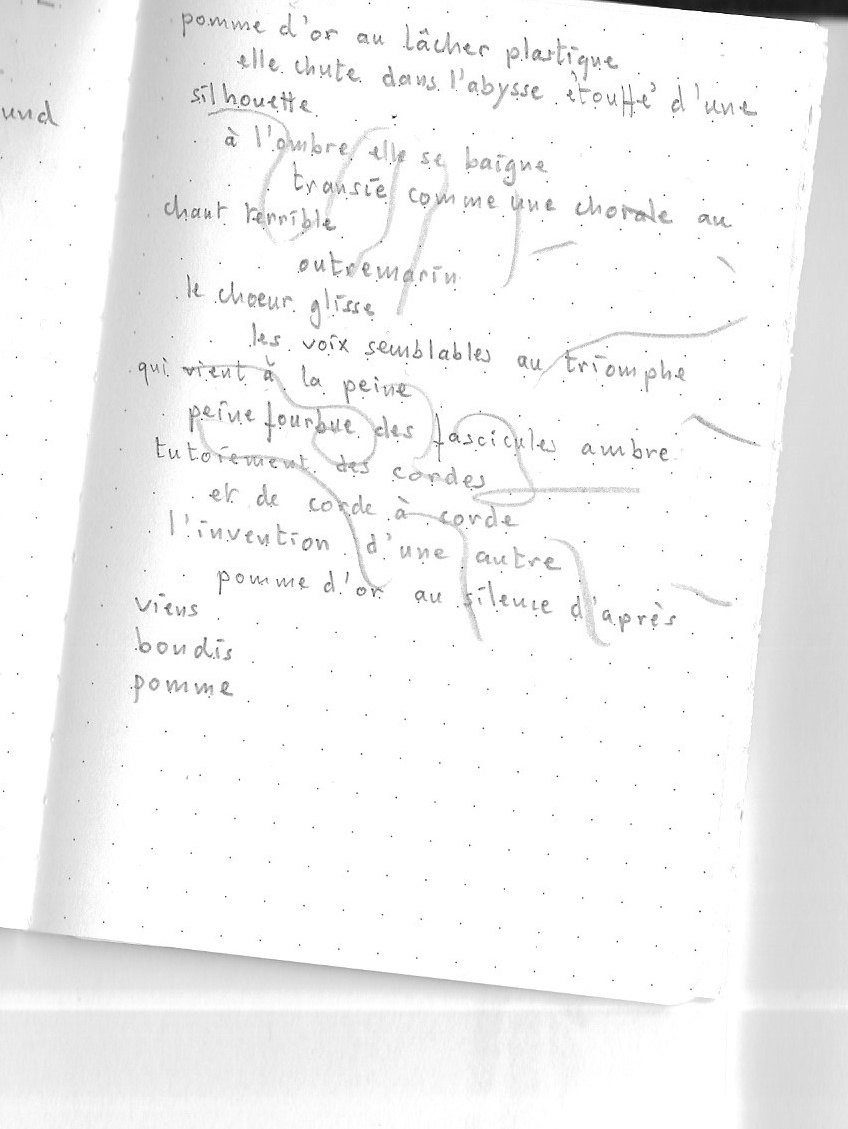 pomme d'or au lâcher plastique
elle chute dans l'abysse étouffé d'une
silhouette
à l'ombre elle se baigne
transie comme une chorale au
chant terrible
outremarin
le choeur glisse
les voix semblables au triomphe
qui vient à la peine
peine fourbue des fascicules ambre
tutoiement des cordes
et de corde à corde
l'invention d'une autre
pomme d'or au silence d'après
viens
bondis
pomme
und